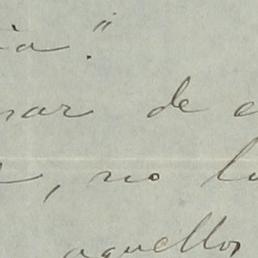 ia."
nar de c
, no lo
aquellos